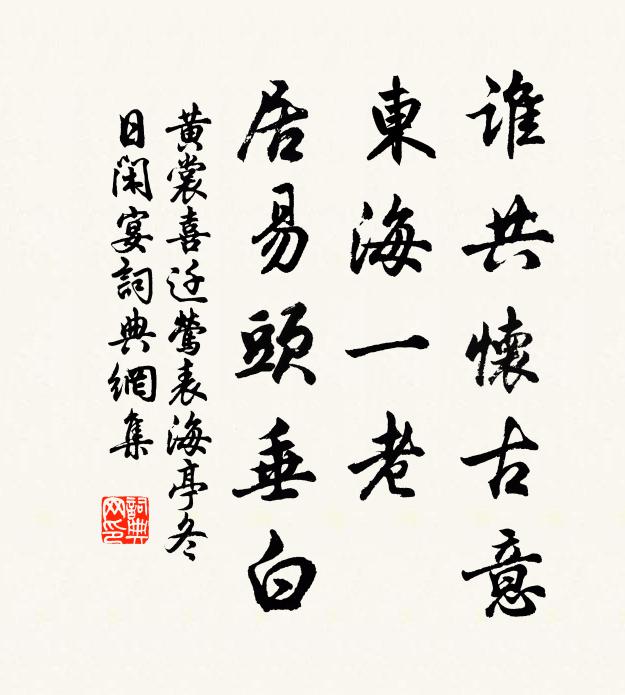 誰共懷古意
東海一老
居易頭垂白
黄裳喜迁鶯表海亭冬
日閑宴詞典網集
詞典
网印